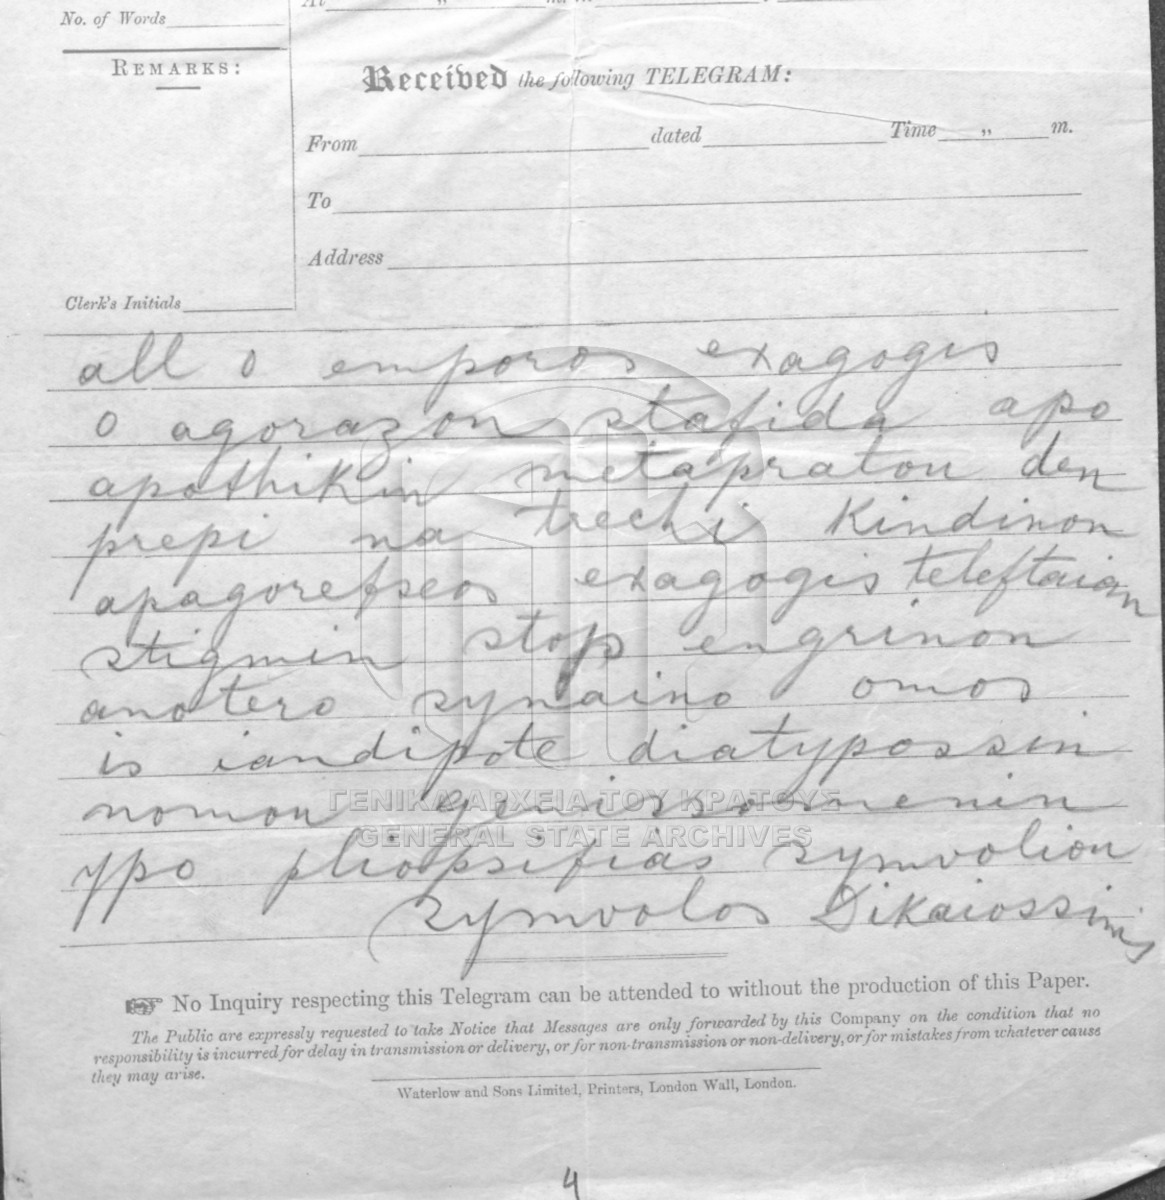 No. of Words
REMARKS:
Received the following TELEGRAM:
From dated Time ,, m.
To
Address
Clerk's Initials
all o emporos exagogis
o agorazon stafida apo
apothikin metapraton den
prepi na trechi kindinon
apagorefseos exagogis teleftaian
stigmin stop engrinon
anotero synaino omos
is iandipote diatypossin
nomou genissomenin
ypo pliopsifias symvoliou
Symvolos Dikaiossinis
ΓΕΝΙΚΑ ΑΡΧΕΙΑ ΤΟΥ ΚΡΑΤΟΥΣ
GENERAL STATE ARCHIVES
No Inquiry respecting this Telegram can be attended to without the production of this Paper.
The Public are expressly requested to take Notice that Messages are only forwarded by this Company on the condition that no
responsibility is incurred for delay in transmission or delivery, or for non-transmission or non-delivery, or for mistakes from whatever cause
they may arise.
Waterlow and Sons Limited, Printers, London Wall, London.
4